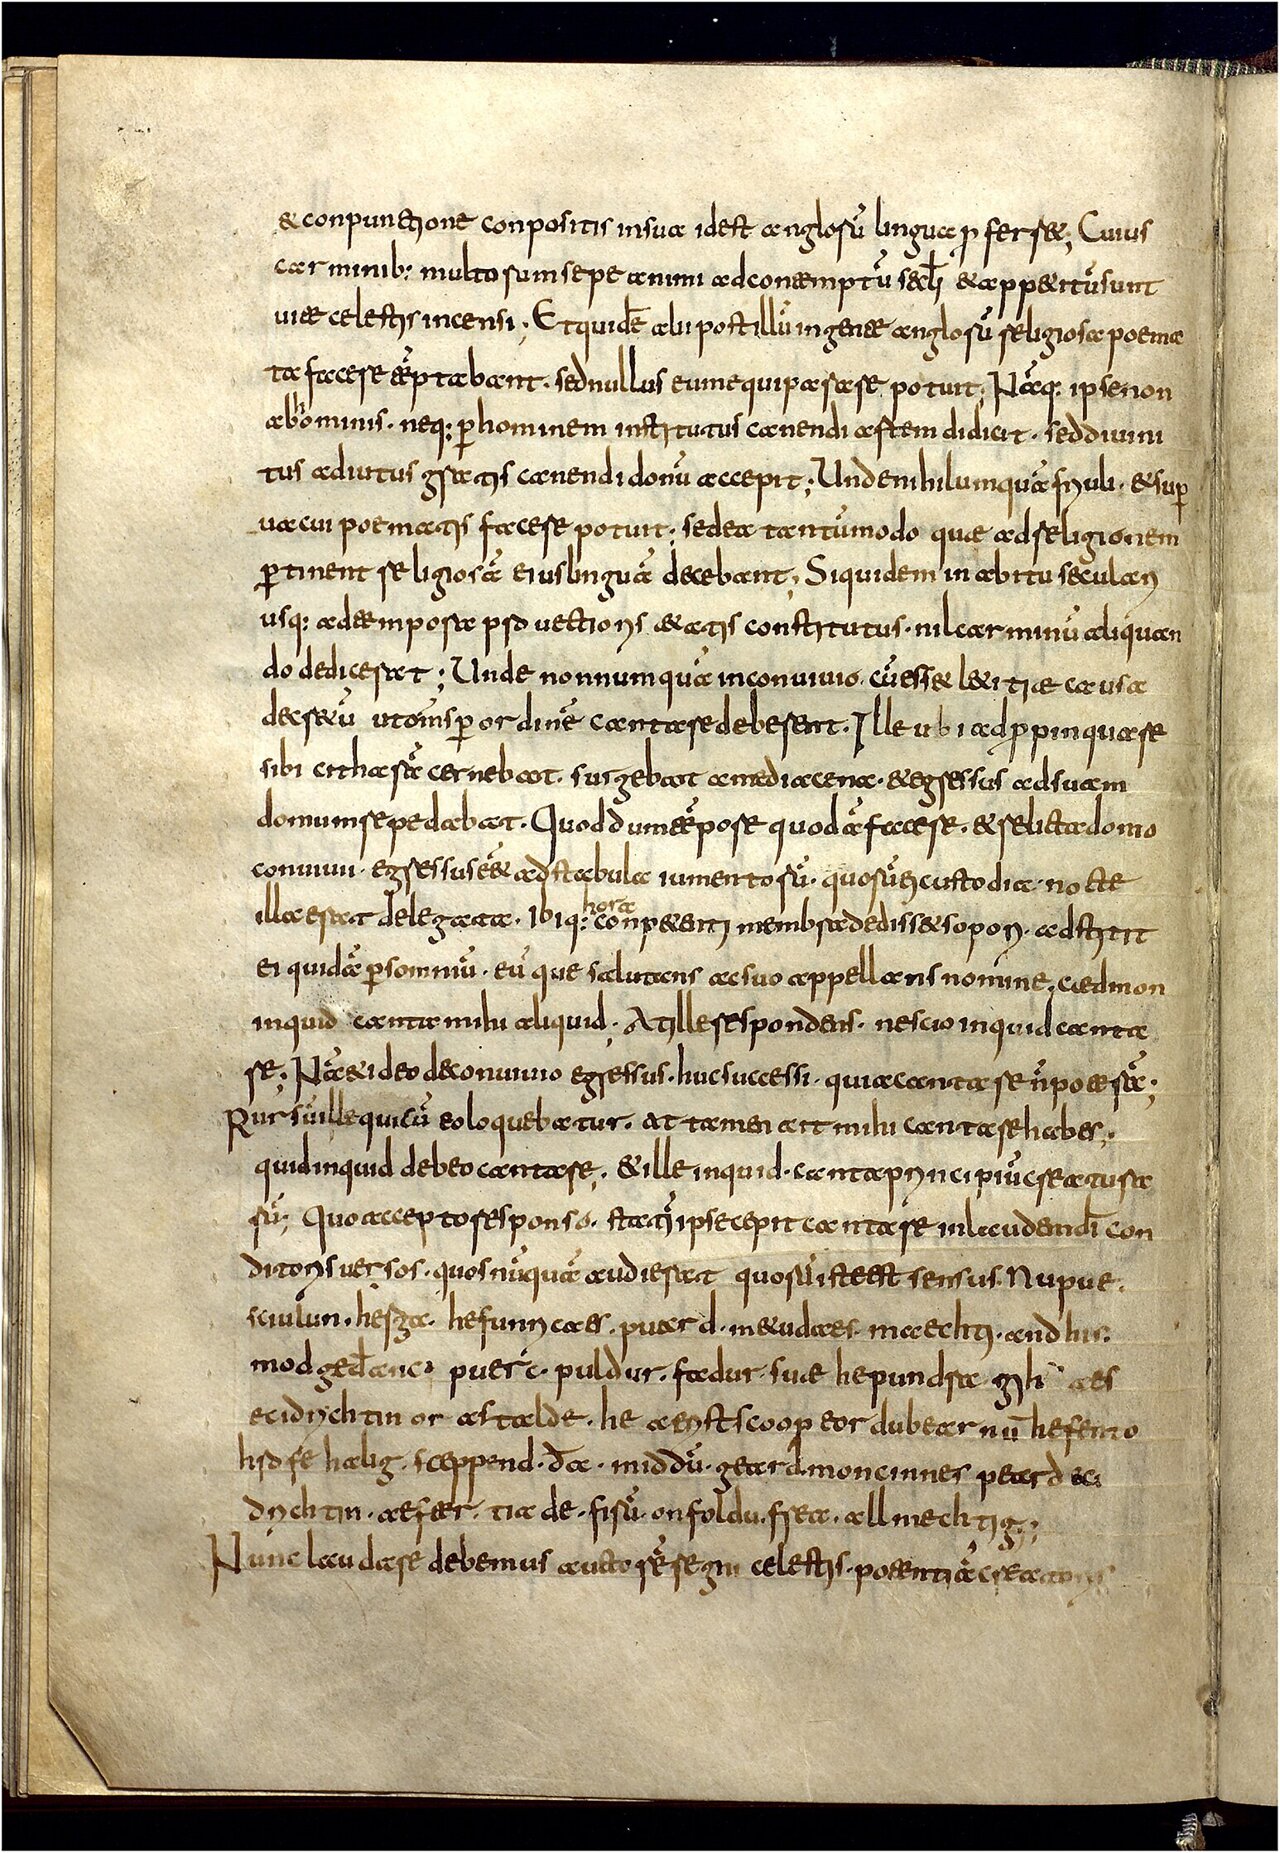 & conpunctione conpositis in sua id est anglorū lingua ꝓferret; Cuius
carminib: multorum sepe animi ad contemptū secłi & appetitū sunt
uitae celestis incensi; Et quidē alii post illū in gente anglorū religiosa poema
ta facere tēptabant· sed nullus eum equiparare potuit; Nāq: ipse non
ab hominis· neq: ꝑ hominem institutus canendi artem didicit· sed diuini
tus adiutus gratis canendi donū accepit; Unde nihil umquā friuli· & suꝑ
uacui poematis facere potuit; sed ea tantūmodo quae ad religionem
ꝑtinent religiosā eius linguā decebant; Siquidem in abitu seculari
usq: ad tempora prouectioris &atis constitutus· nil carminū aliquan
do dedicerat; Unde nonnumquā in conuiuio· cū ess& l&itiae causa
decr&ū ut oms̄ ꝑ ordinē cantare deberent· Ille ubi adꝓpinquare
sibi citharā cernebat· surgebat a media cena· & egressus ad suam
domum repedabat· Quod dum tēpore quodā facere· & relicta domo
conuiui· egressus ēē& ad stabula iumentorū· quorū ei custodia· nocte
illa erat delegata· Ibiq: hora conpetenti membra dediss& sopori· adstitit
ei quidā ꝑ somniū· eūque salutans ac suo appellans nomine; caedmon
inquid canta mihi aliquid; At ille respondens· nescio inquid canta
re; Nā & ideo de conuiuio egressus· huc successi· quia cantare n̄ poterā;
Rursū ille qui cū eo loquebatur· at tamen ait mihi cantare habes;
quid inquid debeo cantare; & ille inquid· canta principiū creatura
rū; Quo accepto responso· statī ipse cepit cantare in laudem dī con
ditoris uersos· quos nūquā audierat quorū iste est sensus· Nu pue·
sciulun· herga· hefunricaes· puard· metudaes· maechti· and his·
mod gedanc· puerc· puldur· fadur· sue he pundra gih aes
eci drichtin or astalde· he aerist scoop eor du bear nū hefento
hrofe halig· sceppend· đa· middū· geard· moncinnes peard eci
drichtin· aefter· tiade· firū· on foldu· frea· allmechtig;
Nunc laudare debemus auctorē regni celestis· potentiā creatoris